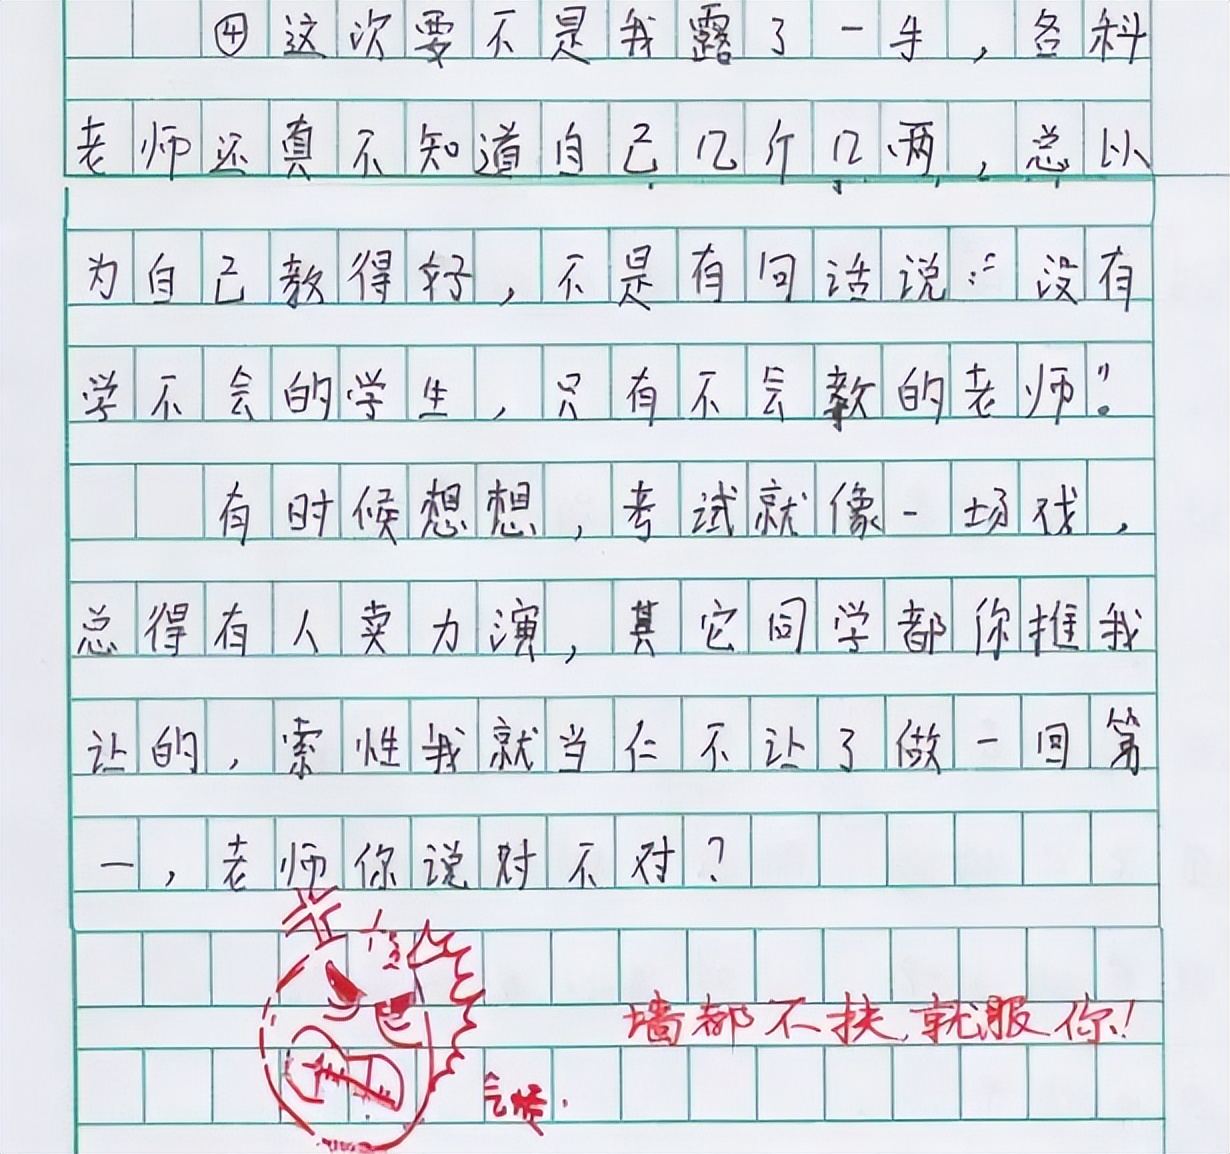 ④这次要不是我露了一手，各科
老师还真不知道自己几斤几两，总以
为自己教得好，不是有句话说："没有
学不会的学生，只有不会教的老师"。
有时候想想，考试就像一场戏，
总得有人卖力演，其它同学都你推我
让的，索性我就当仁不让了做一回第
一，老师你说对不对？
墙都不扶，就服你！